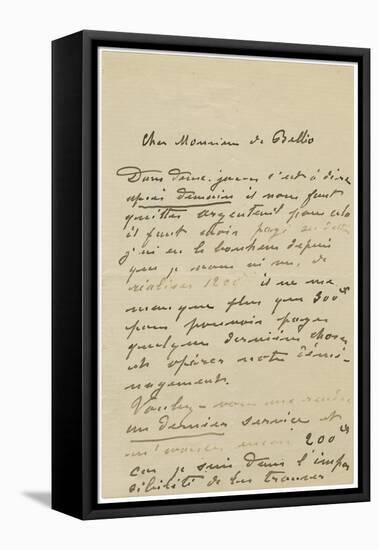 Cher Monsieur de Bellio
Dans deux jours c'est à dire
après demain il nous faut
quitter argenteuil pour cela
il faut avoir payé ses dettes
j'ai eu le bonheur depuis
que je vous ai vu, de
réaliser 1200 il ne me
manque plus que 300 frs
pour pouvoir payer
quelques dernières choses
et opérer notre démé-
nagement.
Voulez-vous me rendre
un dernier service et
m'avancer encore 200 frs
car je suis dans l'impos
sibilité de les trouver